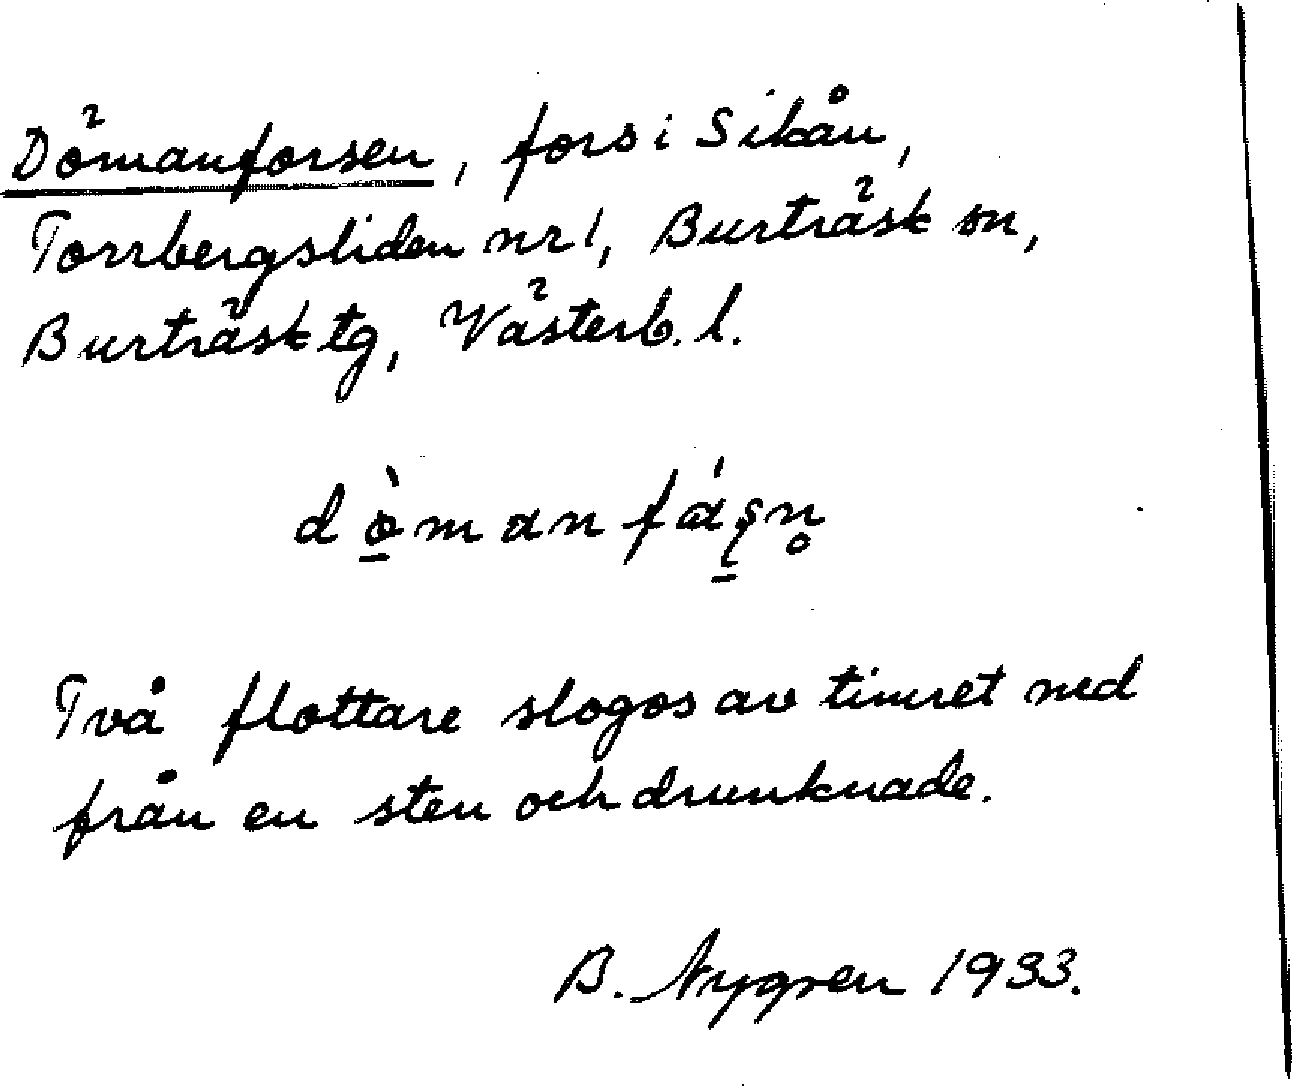 Dömanforsen, fors i Sikån,
Torrbergsliden nr 1, Burträsk sn,
Burträsk tg, Västerb. l.
Två flottare slogos av timret ned
från en sten och drunknade.
B. Nygren 1933.